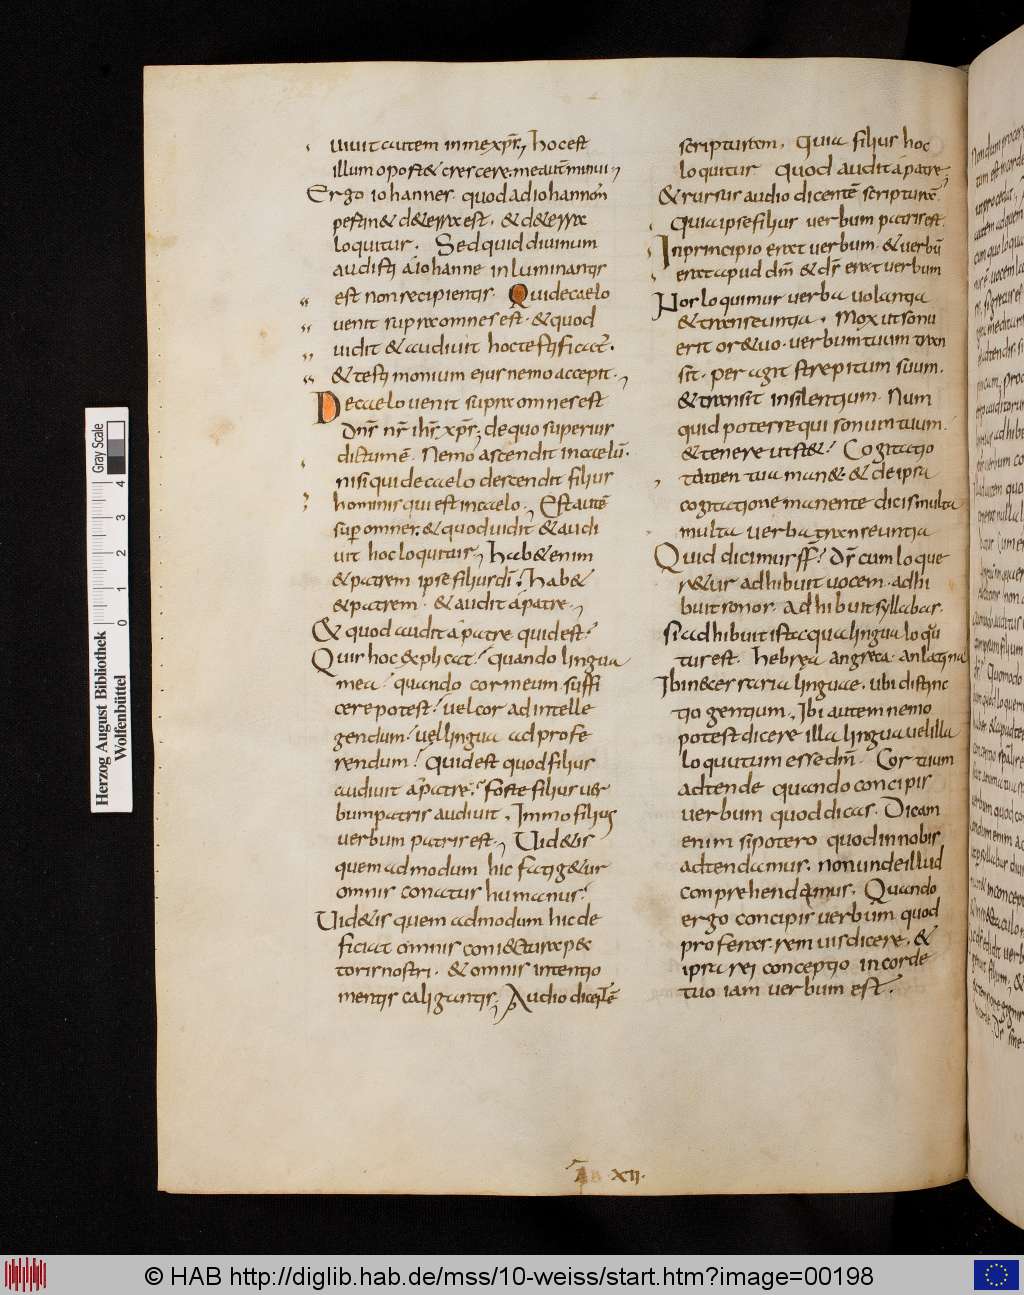 uiuit autem in me xp̄s, hoc est
illum oportet crescere. me aut̄ minui,
Ergo iohannes. quod ad iohannem
pertinet deterra est. & deterra
loquitur. Sed quid diuinum
audisti a iohanne in luminantis
est non recipientis. Qui de caelo
uenit supra omnes est. & quod
uidit & audiuit hoc testificat̄.
& testimonium eius nemo accepit.,
De caelo uenit supra omnes est
dn̄s nr̄ ih̄s xp̄s, de quo superius
dictum ē. Nemo ascendit in caelū.
nisi qui de caelo descendit filius
hominis qui est in caelo., Est autē
sup omnes, & quod uidit & audi
uit hoc loquitur, Habet enim
& patrem ipse filius dī? Habet
& patrem. & audit a patre.,
& quod audit a patre quid est?
Quis hoc explicat? quando lingua
mea? quando cor meum suffi
cere potest? uel cor ad intelle
gendum? uel lingua ad profe
rendum? Quid est quod filius
audiuit a patre? forte filius uer
bum patris audiuit. Immo filius
uerbum patris est., Uidetis
quem ad modum hic fatigetur
omnis conatus humanus?
Uidetis quem ad modum hic de
ficiat omnis coniectura pec
toris nostri. & omnis intentio
mentis caligantis, Audio dicentē
scripturam. Quia filius hoc
loquitur quod audit a patre
& rursus audio dicentē scripturā
Quia ipse filius uerbum patris est.
In principio erat uerbum. & uerbū
erat apud dm̄ & ds̄ erat uerbum
Nos loquimur uerba uolantia
& transeuntia. Mox ut sonu
erit ore tuo. uerbum tuum tran
sit. peragit strepitum suum.
& transit in silentium. Num
quid potes sequi sonum tuum.
& tenere ut stet? Cogitatio
tamen tua manet. & de ipsa
cogitatione manente dicis multa
multa uerba transeuntia
Quid dicimus ff? ds̄ cum loque
retur adhibuit uocem. adhi
buit sonos. adhibuit syllabas.
si adhibuit ista qua lingua loqū
tus est. hebrea an greca. an latina
Ibi necessariae linguae. ubi distinc
tio gentium., Ibi autem nemo
potest dicere illa lingua uel illa
loquutum esse dm̄. Cor tuum
adtende quando concipis
uerbum quod dicas. Dicam
enim si potero quod in nobis
adtendamus. non unde illud
comprehendamus. Quando
ergo concipis uerbum quod
proferas. rem uis dicere. &
ipsa rei conceptio in corde
tuo iam uerbum est.
XII.
Herzog August Bibliothek
Wolfenbüttel
Gray Scale
0 1 2 3 4
© HAB http://diglib.hab.de/mss/10-weiss/start.htm?image=00198